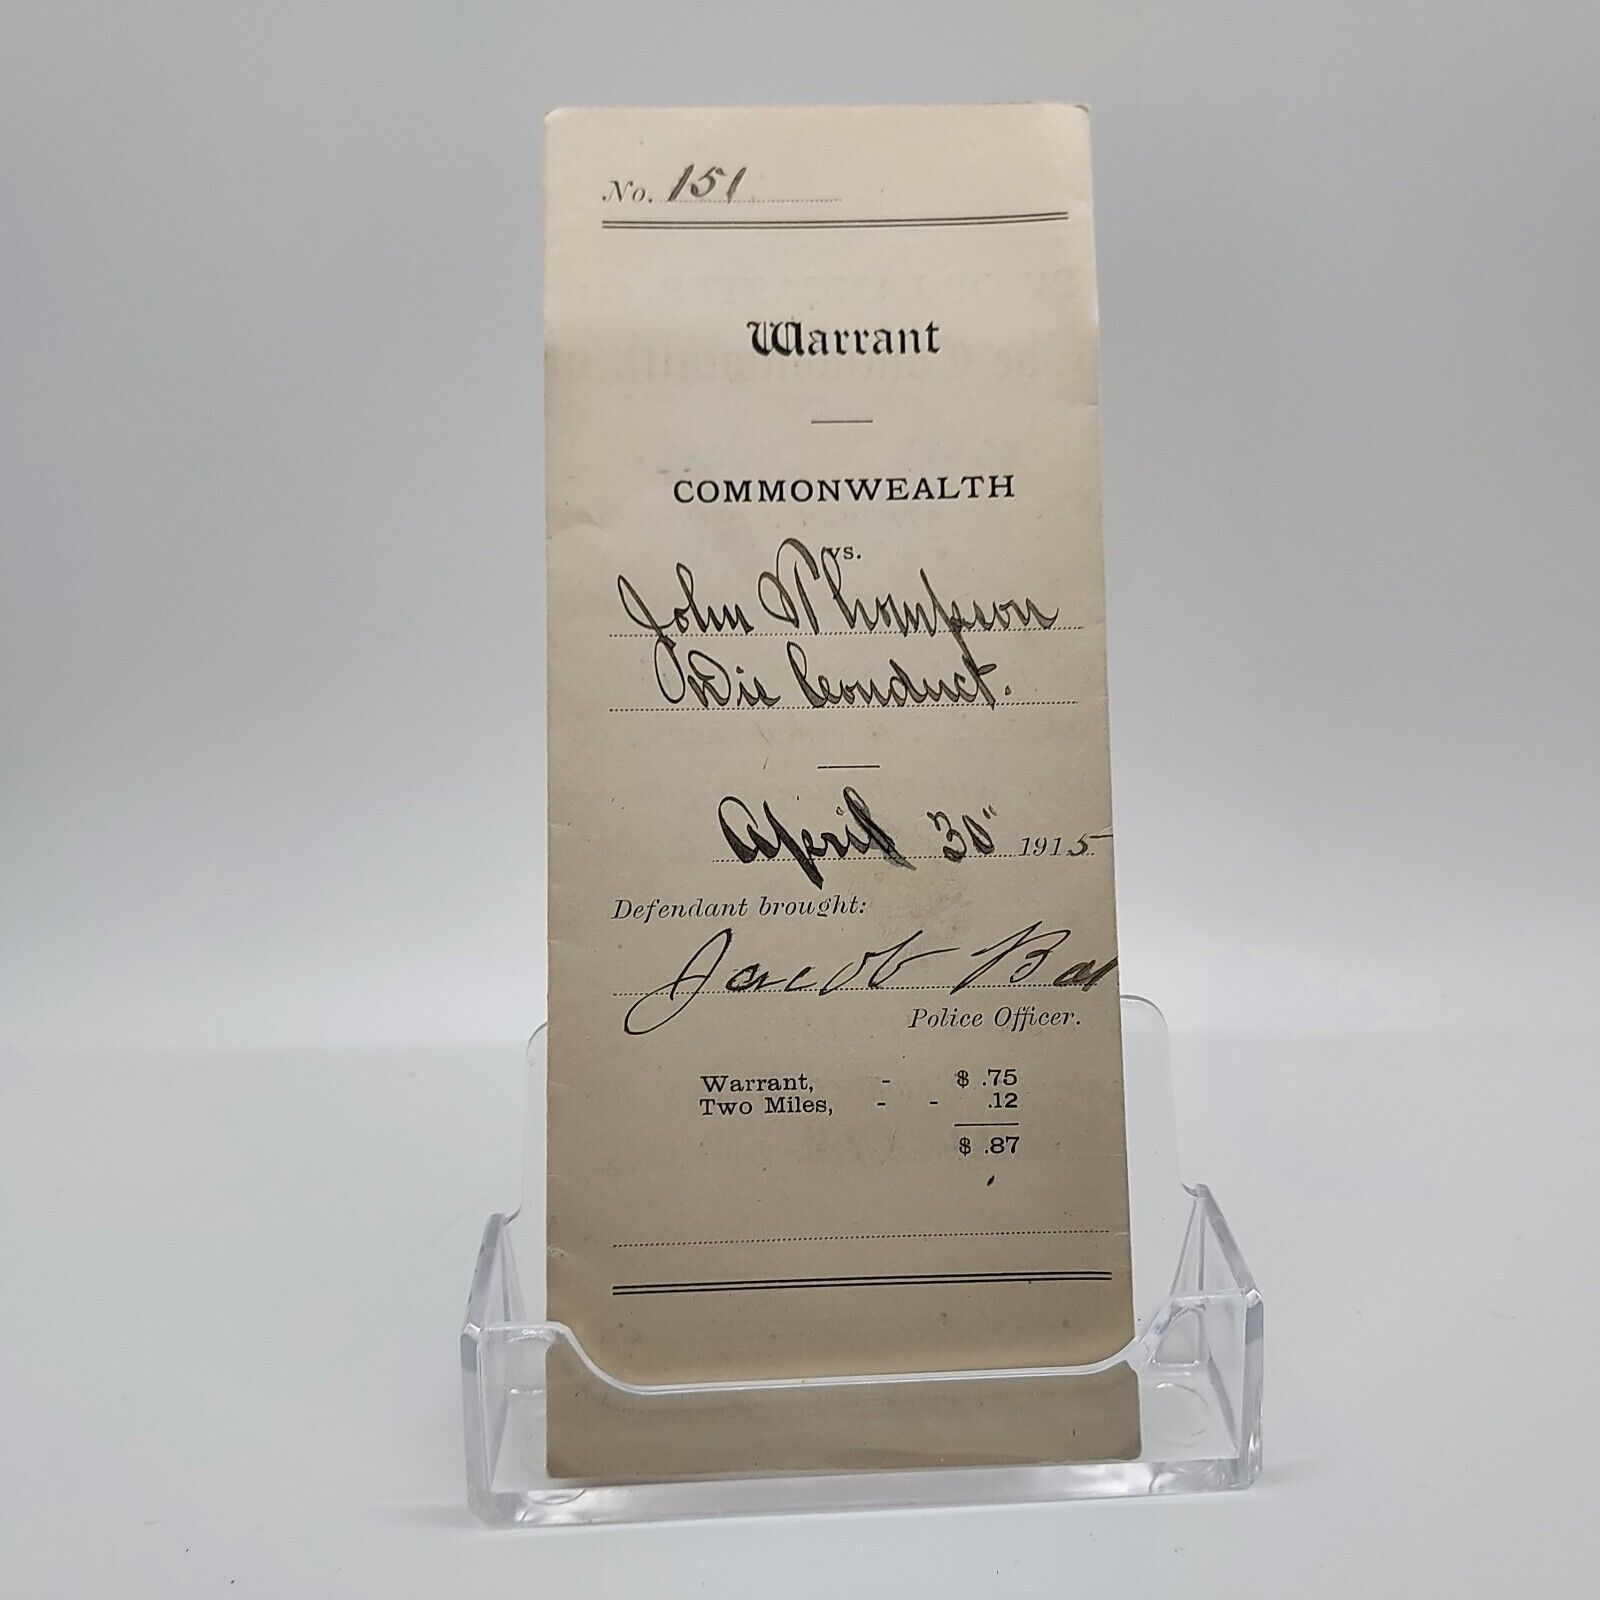 No. 151
Warrant
COMMONWEALTH
vs.
John Thompson
Dis Conduct.
April 30" 1915
Defendant brought:
Jacob
Police Officer.
Warrant, - $ .75
Two Miles, - - .12
$ .87